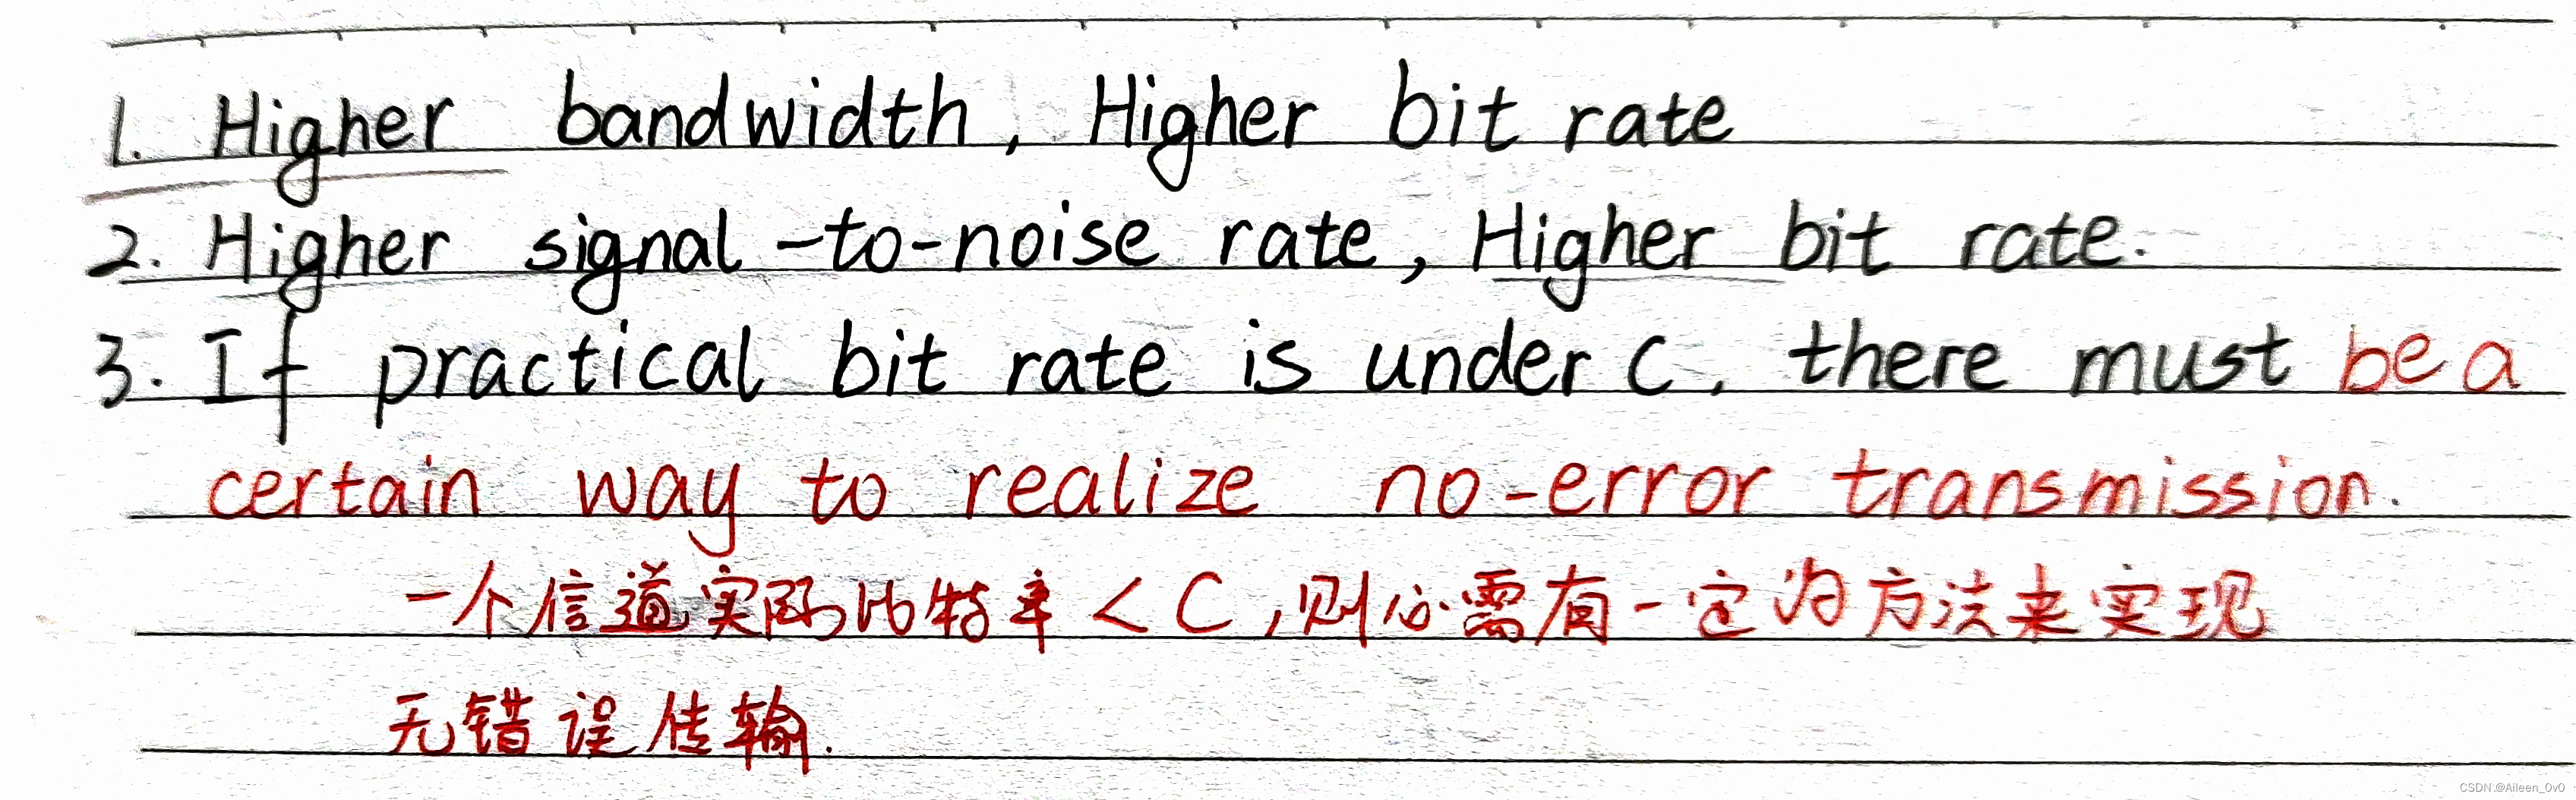 1. Higher bandwidth, Higher bit rate
2. Higher signal-to-noise rate, Higher bit rate.
3. If practical bit rate is under C, there must be a
certain way to realize no-error transmission.
一个信道实际比特率 < C,则必需有一定的方法来实现
无错误传输.
CSDN @Aileen_0v0